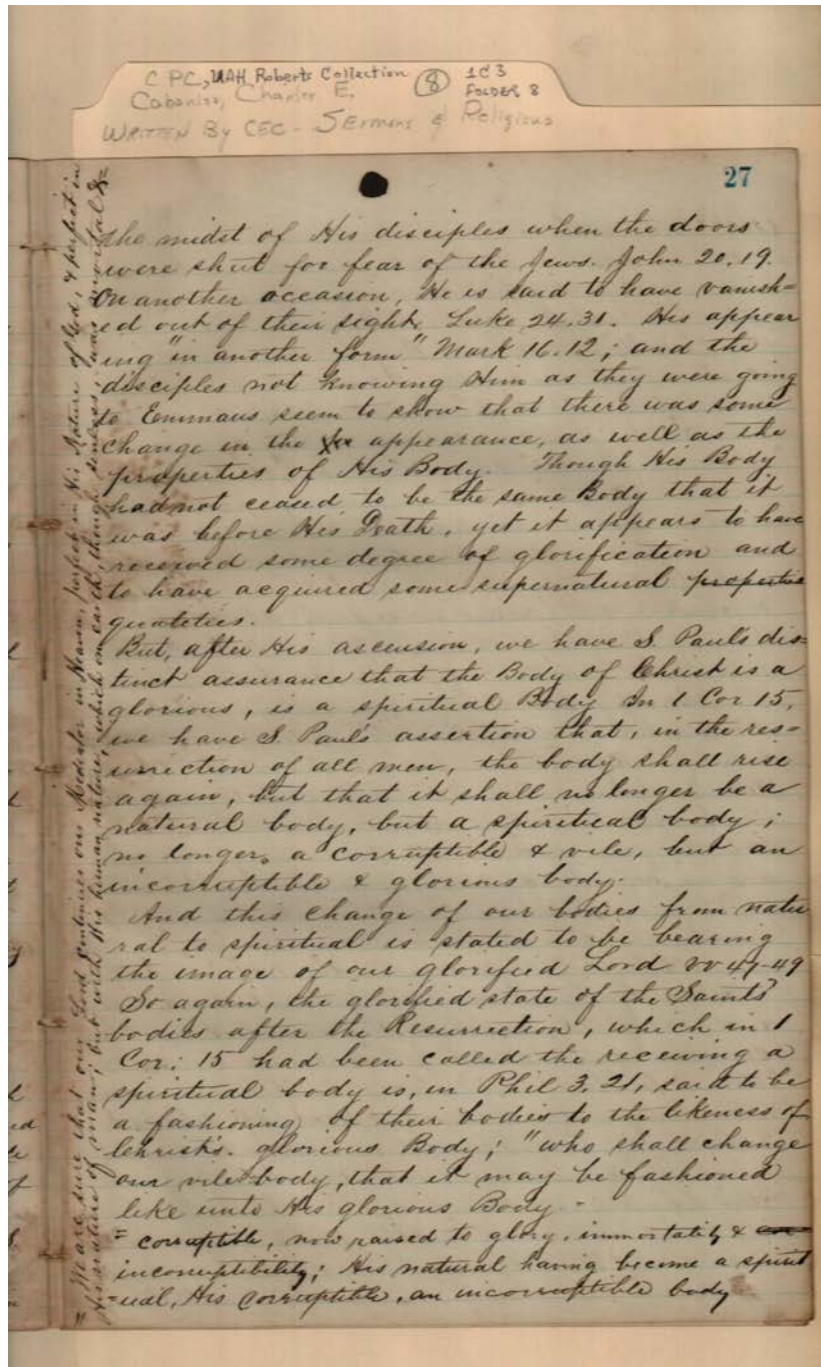 CPC, UAH Roberts Collection
⑧
1C3
FOLDER 8
Cabaniss, Charles E.
WRITTEN By CEC - SErmons & Religious
27
the midst of His disciples when the doors
were shut for fear of the Jews. John 20.19.
On another occasion, He is said to have vanish=
ed out of their sight. Luke 24.31. His appear
ing "in another form" Mark 16.12; and the
disciples not knowing Him as they were going
to Emmaus seem to show that there was some
change in the appearance, as well as the
properties of His Body. Though His Body
had not ceased to be the same Body that it
was before His Death, yet it appears to have
received some degree of glorification and
to have acquired some supernatural properties
quateties.
But, after His ascension, we have S. Paul's dis=
tinct assurance that the Body of Christ is a
glorious, is a spiritual Body In 1 Cor 15,
we have S. Paul's assertion that, in the res=
urrection of all men, the body shall rise
again, but that it shall no longer be a
natural body, but a spiritual body;
no longer, a corruptible & vile, but an
incorruptible & glorious body.
And this change of our bodies from natu
ral to spiritual is stated to be bearing
the image of our glorified Lord vv 47-49
So again, the glorified state of the Saints'
bodies after the Resurrection, which in 1
Cor: 15 had been called the receiving a
spiritual body is, in Phil 3.21, said to be
a fashioning of their bodies to the likeness of
Christ's. glorious Body; "who shall change
our vile body, that it may be fashioned
like unto His glorious Body.-
= corruptible, now raised to glory, immortality & an
incorruptibility; His natural having become a spirit
=ual, His corruptible, an incorruptible body
"We are sure that our Lord continues our Mediator in Heaven, perfect in His Nature of God, & perfect in
His nature of man; but with His human nature, which on earth, though sinless, was mortal &=